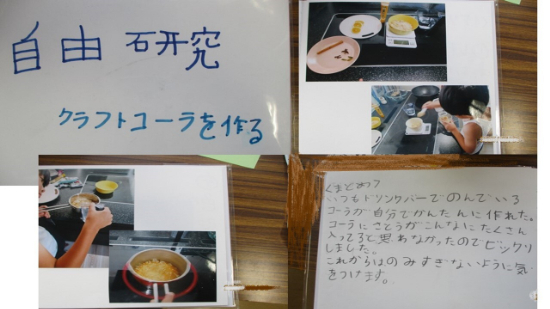 自由研究
クラフトコーラを作る
くまとめ7
いつもドリンクバーでのんでいる
コーラが自分でかんたんに作れた。
コーラにさとうがこんなにたくさん
入ってると思わなかったのでビックリ
しました。
これからはのみすぎないように気
をつけます。